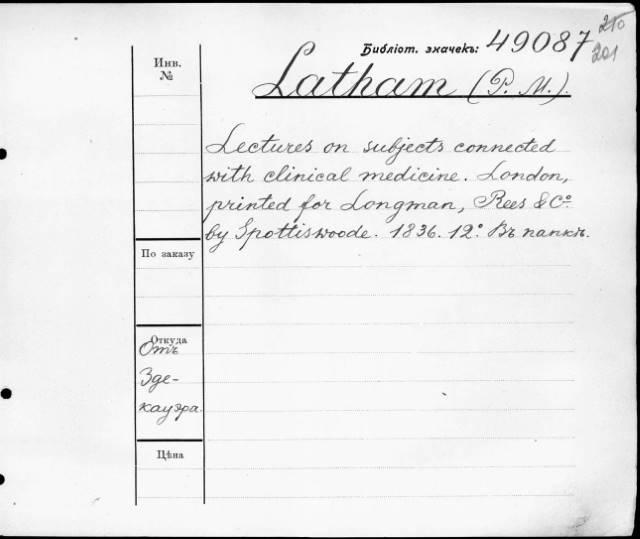 210
Библіот. значекъ: 49087
201
Инв.
№
Latham (P. M.).
Lectures on subjects connected
with clinical medicine. London,
printed for Longman, Rees & Co.
by Spottiswoode. 1836. 12°. Въ папкѣ.
По заказу
Откуда
Отъ
Зде-
кауэра.
Цѣна